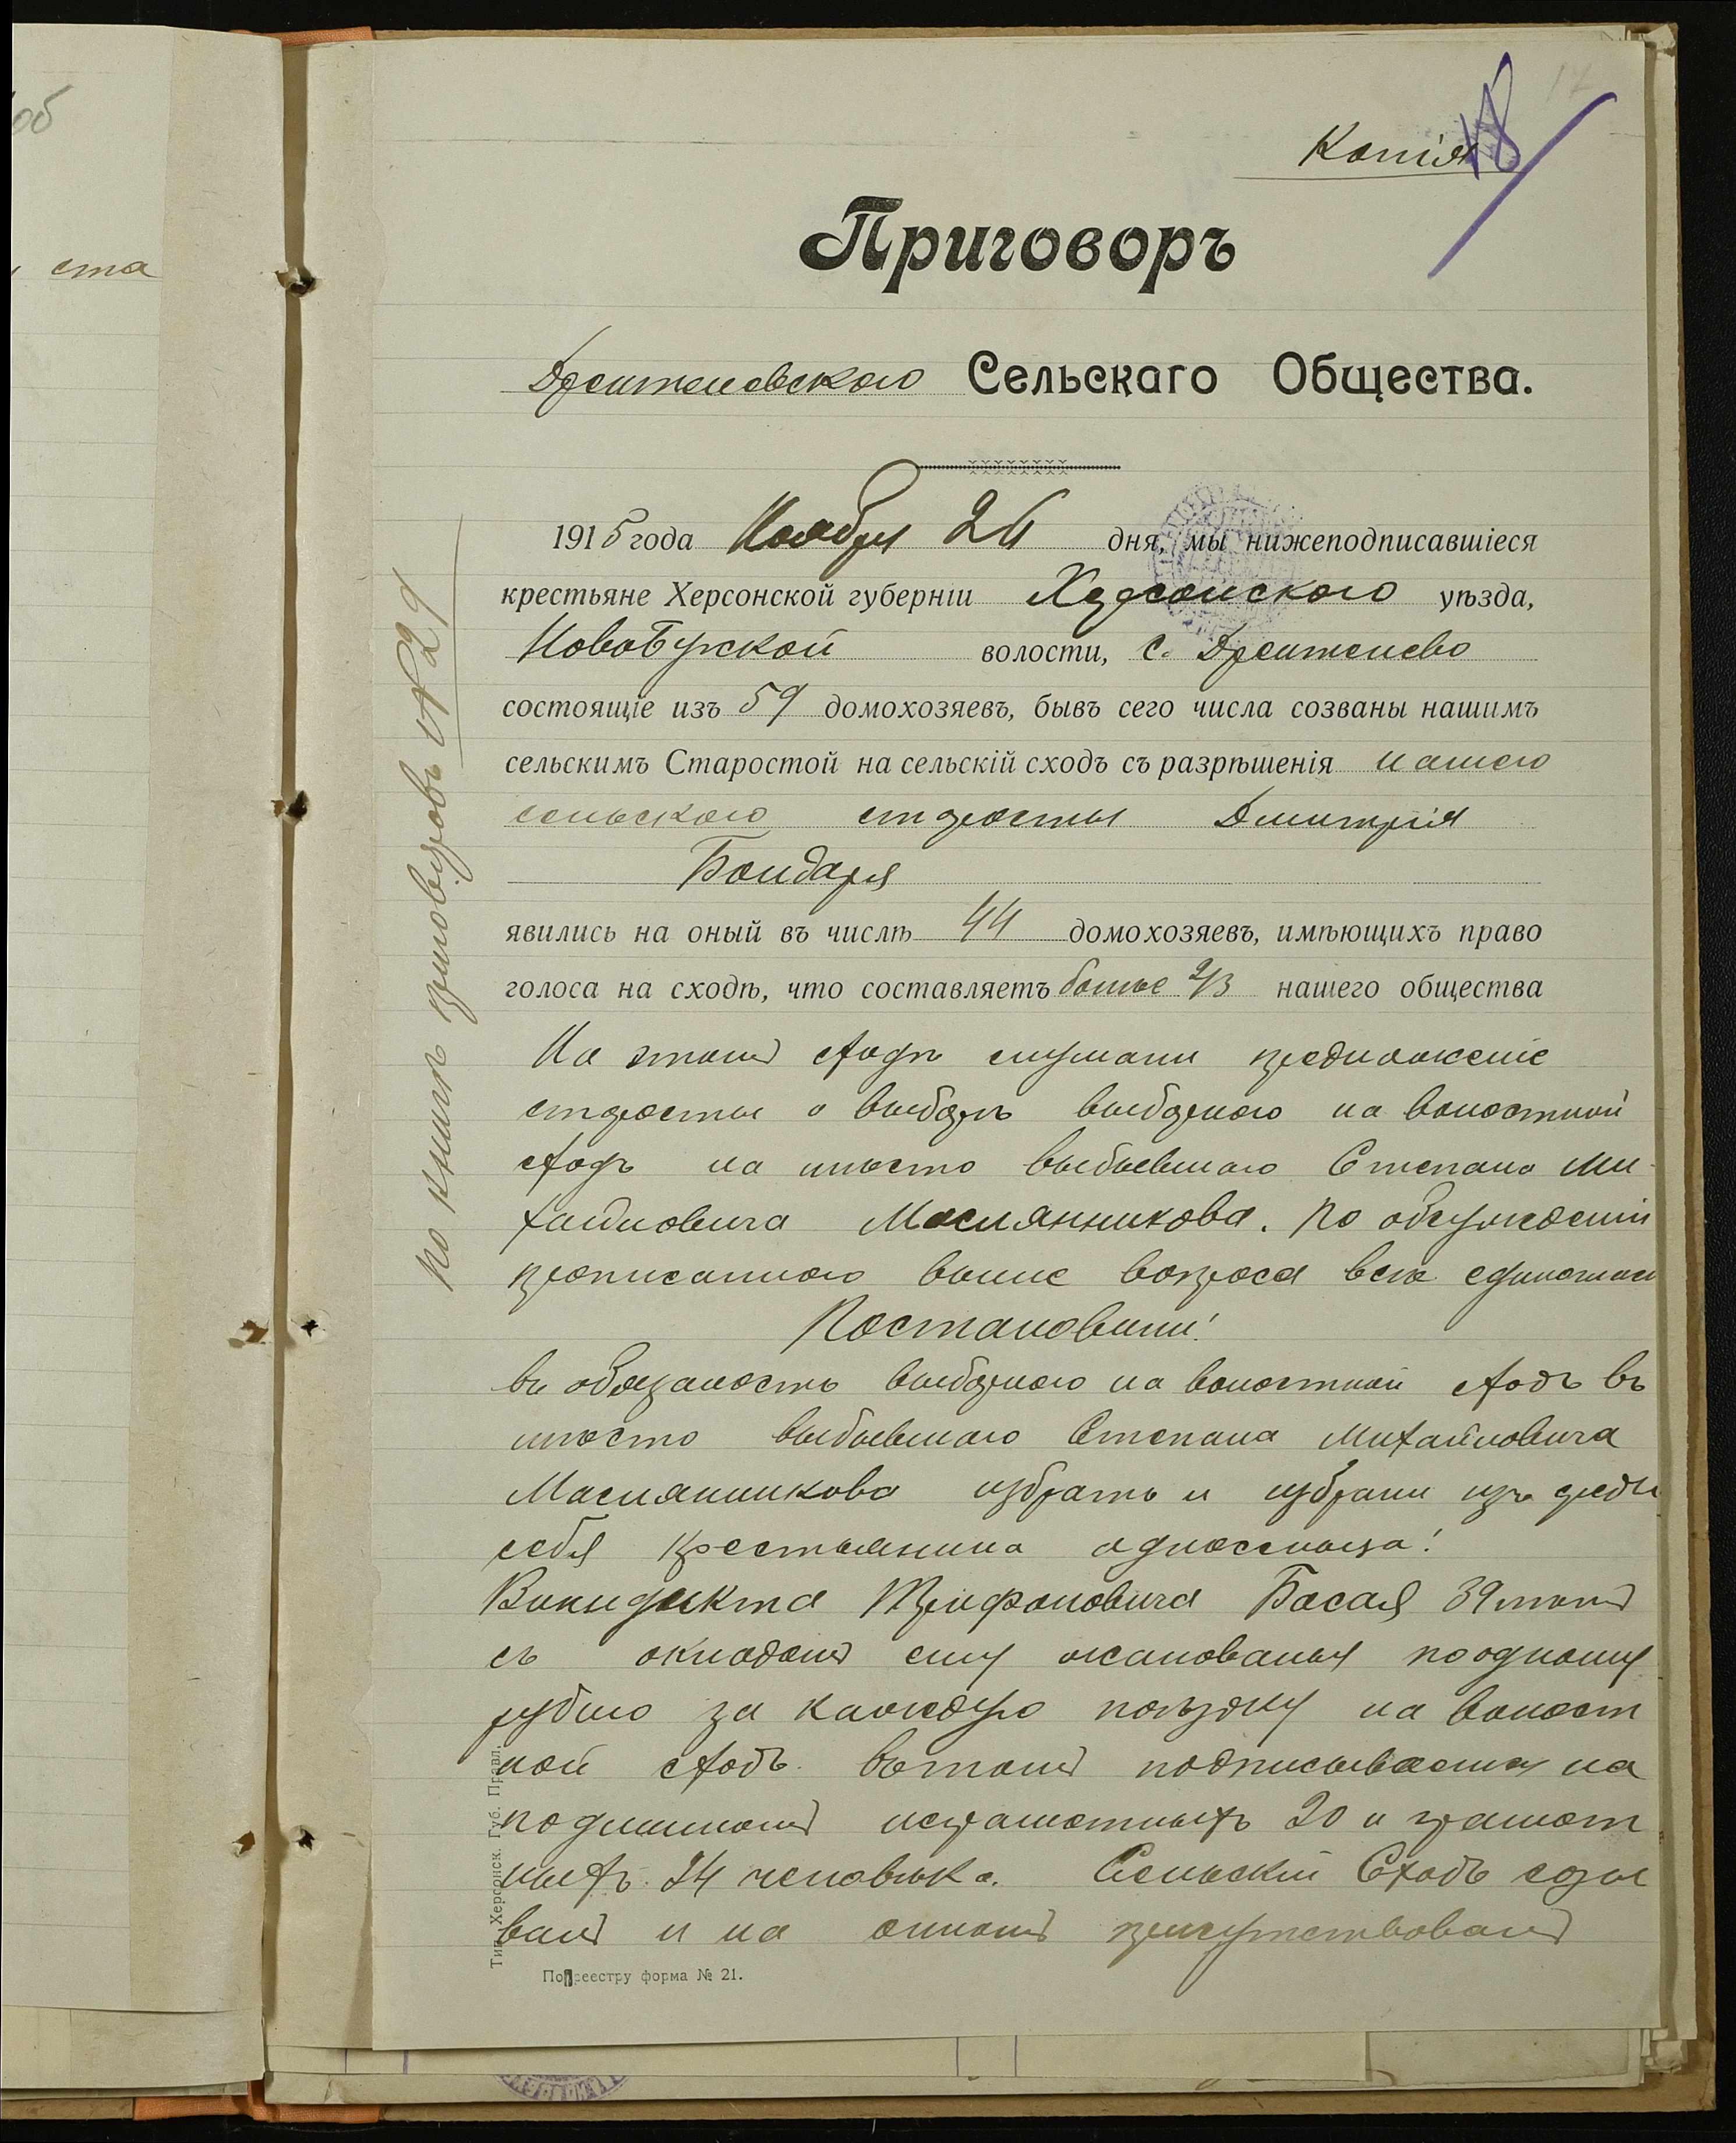 об
ста
Копія
18
Приговоръ
Арентенсвского Сельскаго Общества.
1915 года Ноября 26 дня, мы нижеподписавшіеся
крестьяне Херсонской губерніи Херсонского уѣзда,
Новобугской волости, с.
состоящіе изъ 59 домохозяевъ, бывъ сего числа созваны нашимъ
сельскимъ Старостой на сельскій сходъ съ разрѣшенія нашего
сельского старосты Дмитрія
Бондаря
явились на оный въ числѣ 44 домохозяевъ, имѣющихъ право
голоса на сходѣ, что составляетъ более 2/3 нашего общества
На этомъ сходѣ слушали предложеніе
старосты о выборѣ выборного на волостной
сходъ на место выбывшаго Степана Ми-
хайловича Маслянникова. По обсужденіи
прописанного выше вопроса все единогласн
Постановили:
въ обязаность выборного на волостной сходъ въ
место выбывшаго Степана Михайловича
Маслянникова избрать и избрали изъ среды
себя крестьянина односельца:
Трифоновича Басая 39 летъ
съ окладомъ ему жалованья по одному
рублю за каждую поѣздку на волост
ной сходъ. Вътомъ подписываемся на
подлинномъ неграмотныхъ 20 и грамот
ныхъ 24 человѣка. Сельскій Сходъ созы
валъ и на ономъ присутствовалъ
По книгѣ приговоровъ №29
Тип. Херсонск. Губ. Правл.
По реестру форма № 21.